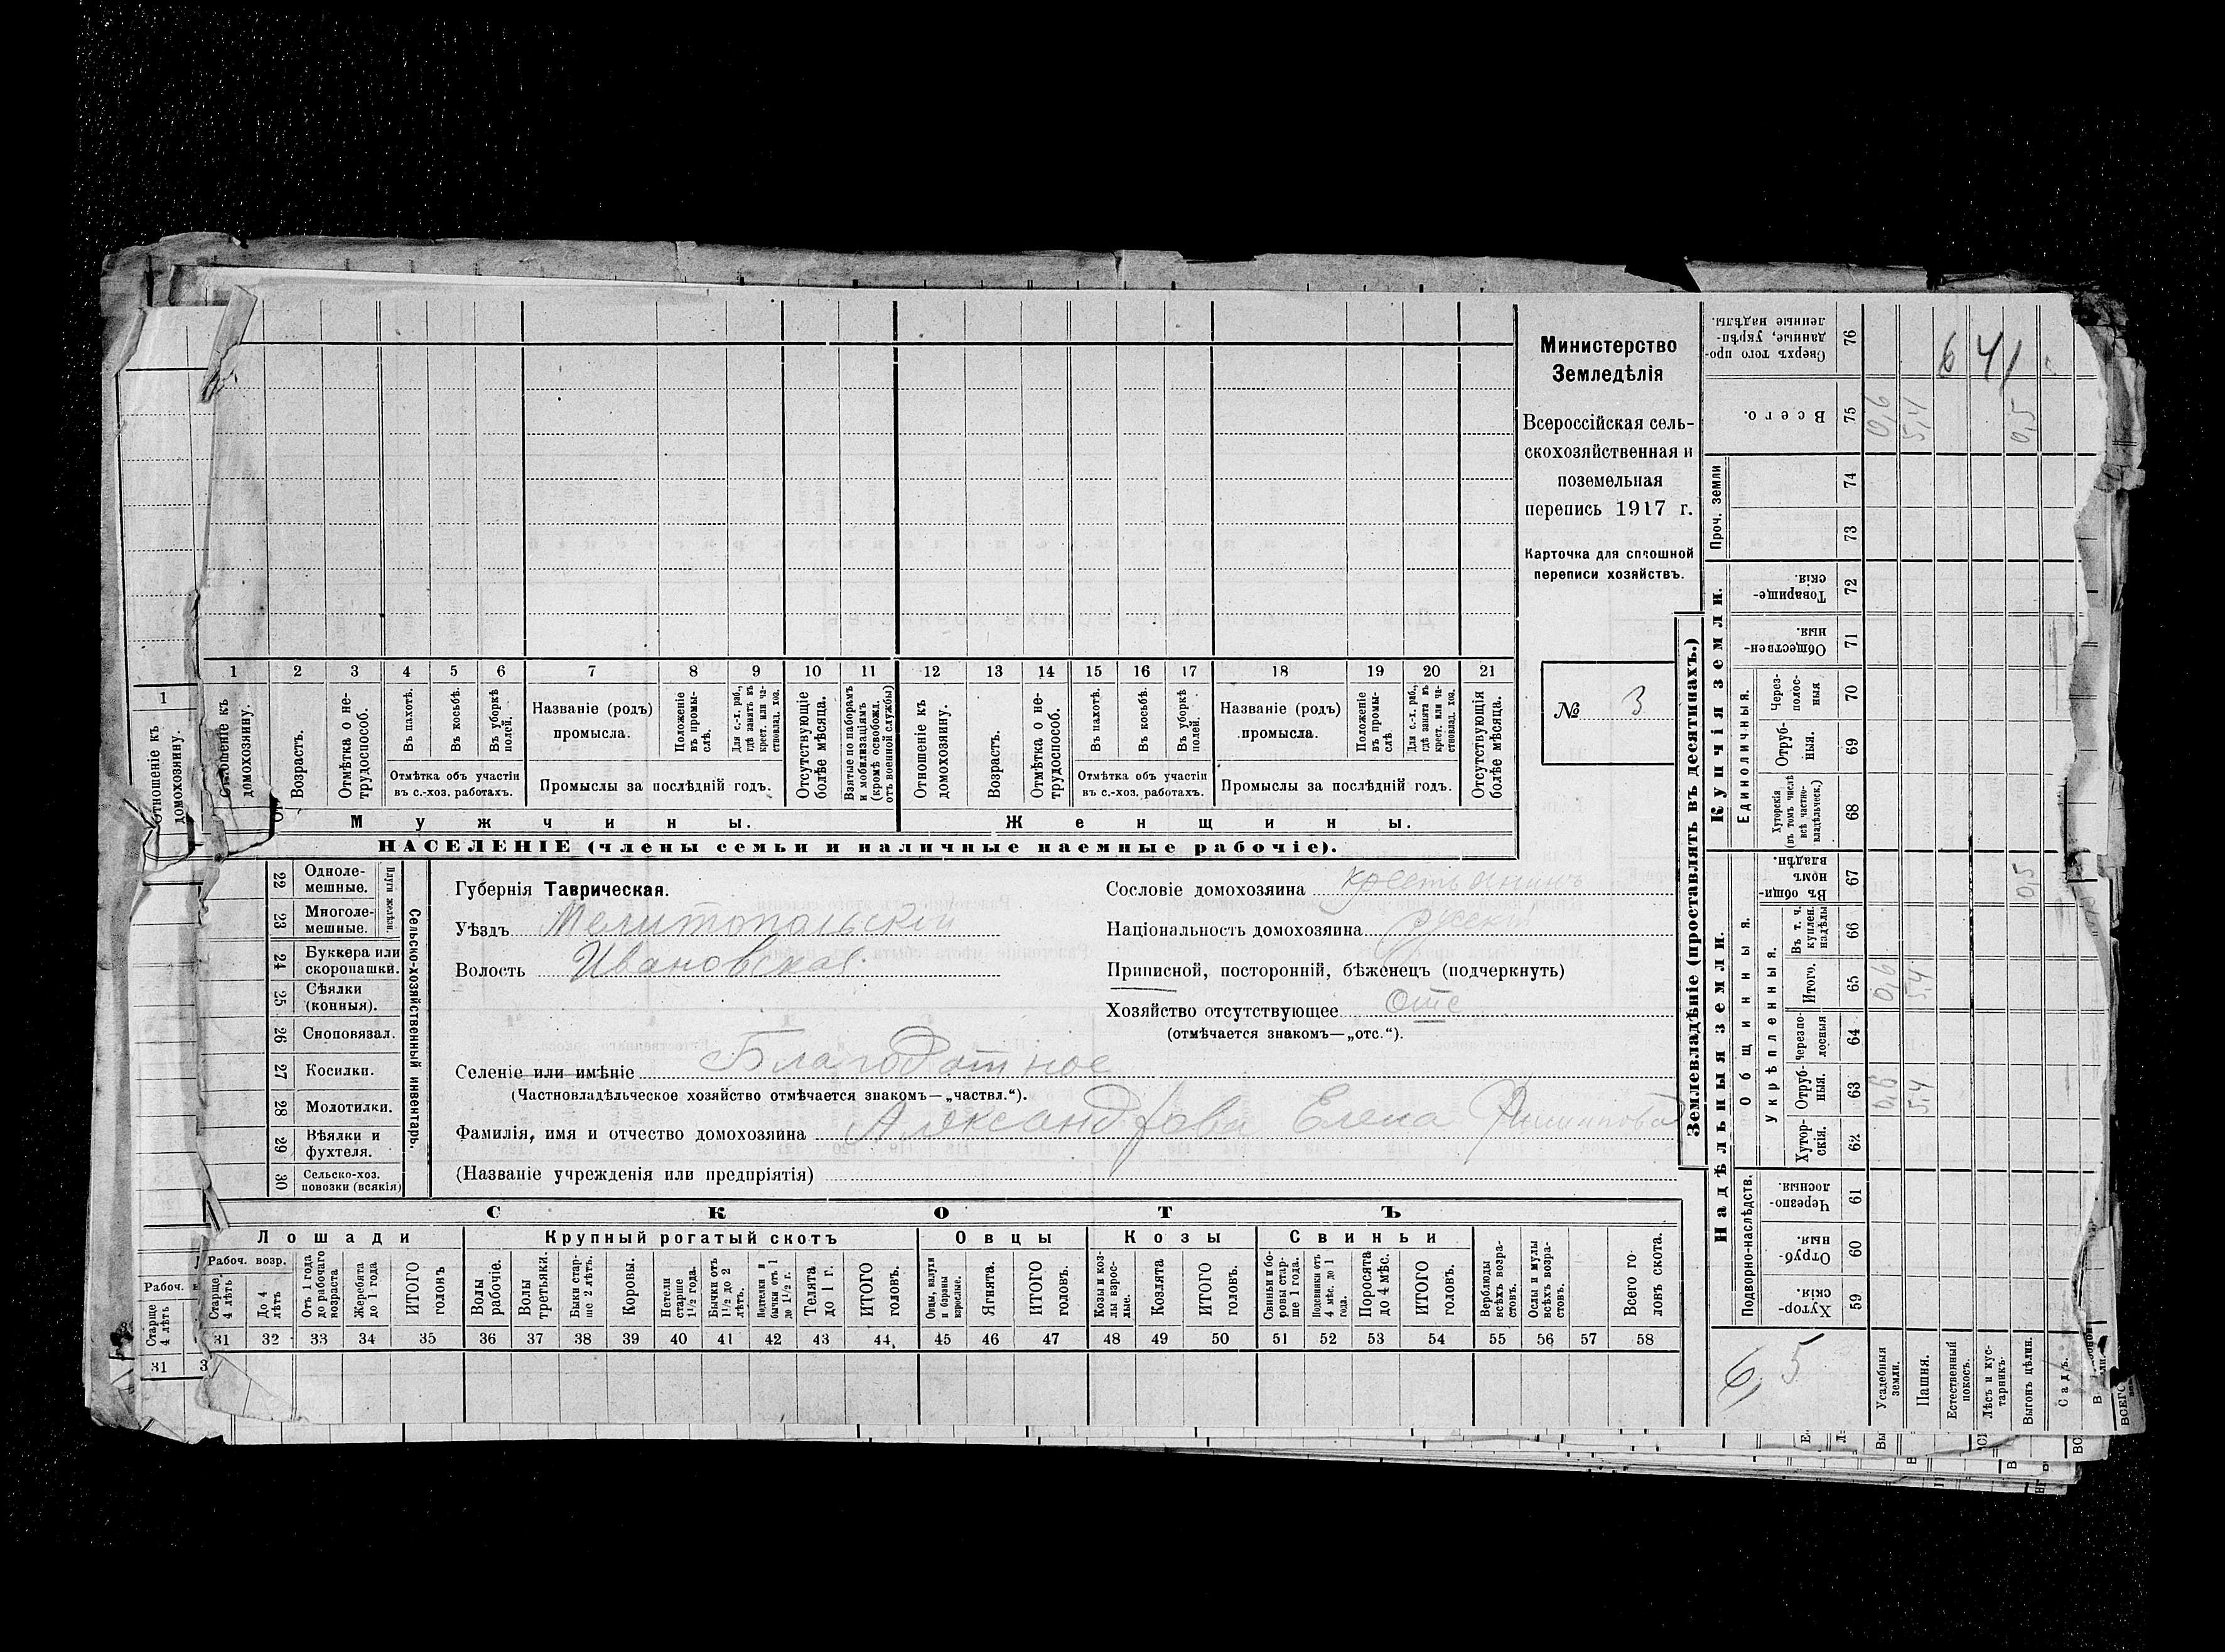 Министерство
Земледѣлія
Всероссійская сель-
скохозяйственная и
поземельная
перепись 1917 г.
Карточка для сплошной
переписи хозяйствъ.
№ 3
1 2 3 4 5 6 7 8 9 10 11 12 13 14 15 16 17 18 19 20 21
Отношеніе къ домохозяину.
Возрастъ.
Отмѣтка о не-трудоспособ.
Въ пахотѣ.
Въ косьбѣ.
Въ уборкѣ полей.
Отмѣтка объ участіи
въ с.-хоз. работахъ.
Названіе (родъ)
промысла.
Положеніе въ промы-слѣ.
Для с.-х. раб., гдѣ занятъ въ крест. или ча-стновлад. хоз.
Промыслы за послѣдній годъ.
Отсутствующіе болѣе мѣсяца.
Взятые по наборамъ и мобилизаціямъ (кромѣ освобожд. отъ военной службы)
Отношеніе къ домохозяину.
Возрастъ.
Отмѣтка о не-трудоспособ.
Въ пахотѣ.
Въ косьбѣ.
Въ уборкѣ полей.
Отмѣтка объ участіи
въ с.-хоз. работахъ.
Названіе (родъ)
промысла.
Положеніе въ промы-слѣ
Для с.-х. раб., гдѣ занята въ крест. или ча-стновлад. хоз.
Промыслы за послѣдній годъ.
Отсутствующія болѣе мѣсяца.
Мужчины.
Женщины.
НАСЕЛЕНІЕ (члены семьи и наличные наемные рабочіе).
Сельско-хозяйственный инвентарь.
Плуги желѣзн.
22 Одноле-мешные.
23 Многоле-мешные.
24 Буккера или скоропашки.
25 Сѣялки (конныя).
26 Сноповязал.
27 Косилки.
28 Молотилки.
29 Вѣялки и фухтеля.
30 Сельско-хоз. повозки (всякія)
Губернія Таврическая.
Уѣздъ Мелитопольскій
Волость Ивановская
Сословіе домохозяина крестьянинъ
Національность домохозяина русскій
Приписной, посторонній, бѣженецъ (подчеркнуть)
Хозяйство отсутствующее Отс
(отмѣчается знакомъ—„отс.“).
Селеніе или имѣніе Благодатное
(Частновладѣльческое хозяйство отмѣчается знакомъ—„частвл.“).
Фамилія, имя и отчество домохозяина Александрова Елена Филиппова
(Названіе учрежденія или предпріятія)
СКОТЪ
Лошади
Крупный рогатый скотъ
Овцы
Козы
Свиньи
Рабоч. возр.
Старше 4 лѣтъ
До 4 лѣтъ
Отъ 1 года до рабочаго возраста
Жеребята до 1 года
ИТОГО головъ
Волы рабочіе.
Волы третьяки.
Быки стар-ше 2 лѣтъ.
Коровы.
Нетели старше 1½ года.
Бычки отъ 1½ до 2 лѣтъ.
Подтелки и бычки отъ 1 до 1½ г.
Телята до 1 г.
ИТОГО головъ.
Овцы, валухи и бараны взрослые.
Ягнята.
ИТОГО головъ.
Козы и коз-лы взрос-лые.
Козлята
ИТОГО головъ.
Свиньи и бо-ровы стар-ше 1 года.
Подсвинки отъ 4 мѣс. до 1 года.
Поросята до 4 мѣс.
ИТОГО головъ.
Верблюды всѣхъ возра-стовъ.
Ослы и мулы всѣхъ возра-стовъ.
Всего го-ловъ скота.
31 32 33 34 35 36 37 38 39 40 41 42 43 44 45 46 47 48 49 50 51 52 53 54 55 56 57 58
Землевладѣніе (проставлять въ десятинахъ.)
Надѣльныя земли.
Купчія земли.
Проч. земли
Подворно-наслѣдств.
Общинныя.
Укрѣпленныя.
Единоличныя.
76 Сверхъ того про-данные, укрѣп-ленные надѣлы. 6 41
75 Всего. 0,6 5,4 0,5
74
73
72 Товарище-скія.
71 Обществен-ныя.
70 Через-полос-ныя
69 Отруб-ныя.
68 Хуторскія (въ томъ числѣ всѣ частно-владѣльческ.)
67 Въ общин-номъ владѣн. 0,5
66 Въ т. ч. куплен. надѣлы
65 Итого. 0,6 5,4
64 Черезпо-лосныя
63 Отруб-ныя. 0,6 5,4
62 Хутор-скія.
61 Черезпо-лосныя.
60 Отруб-ныя.
59 Хутор-скія.
6,5
Усадебныя земли.
Пашня.
Естественный покосъ.
Лѣсъ и кус-тарникъ.
Выгонъ цѣлин.
Садъ.
ВСЕГО
1
Отношеніе къ домохозяину.
Рабоч.
Старше 4 лѣтъ
31